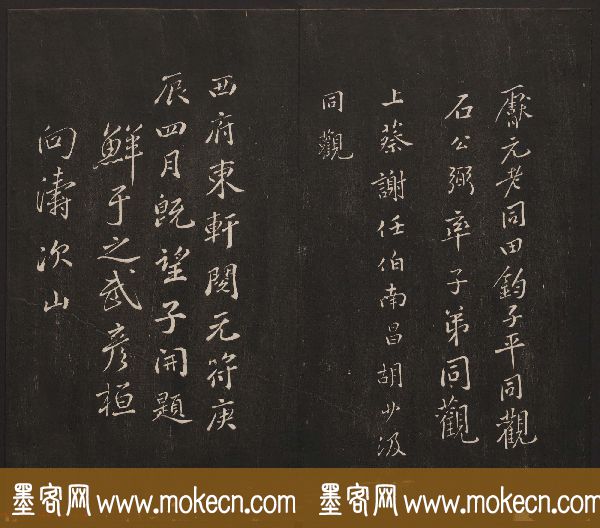 厭元老同田鈞子平同觀
石公弼率子弟同觀
上蔡謝任伯南昌胡少汲
同觀
西府東軒閱元符庚
辰四月既望子開題
鮮于之武彥桓
向濤次山
墨客网 www.mokecn.com 墨客网 www.mokecn.com